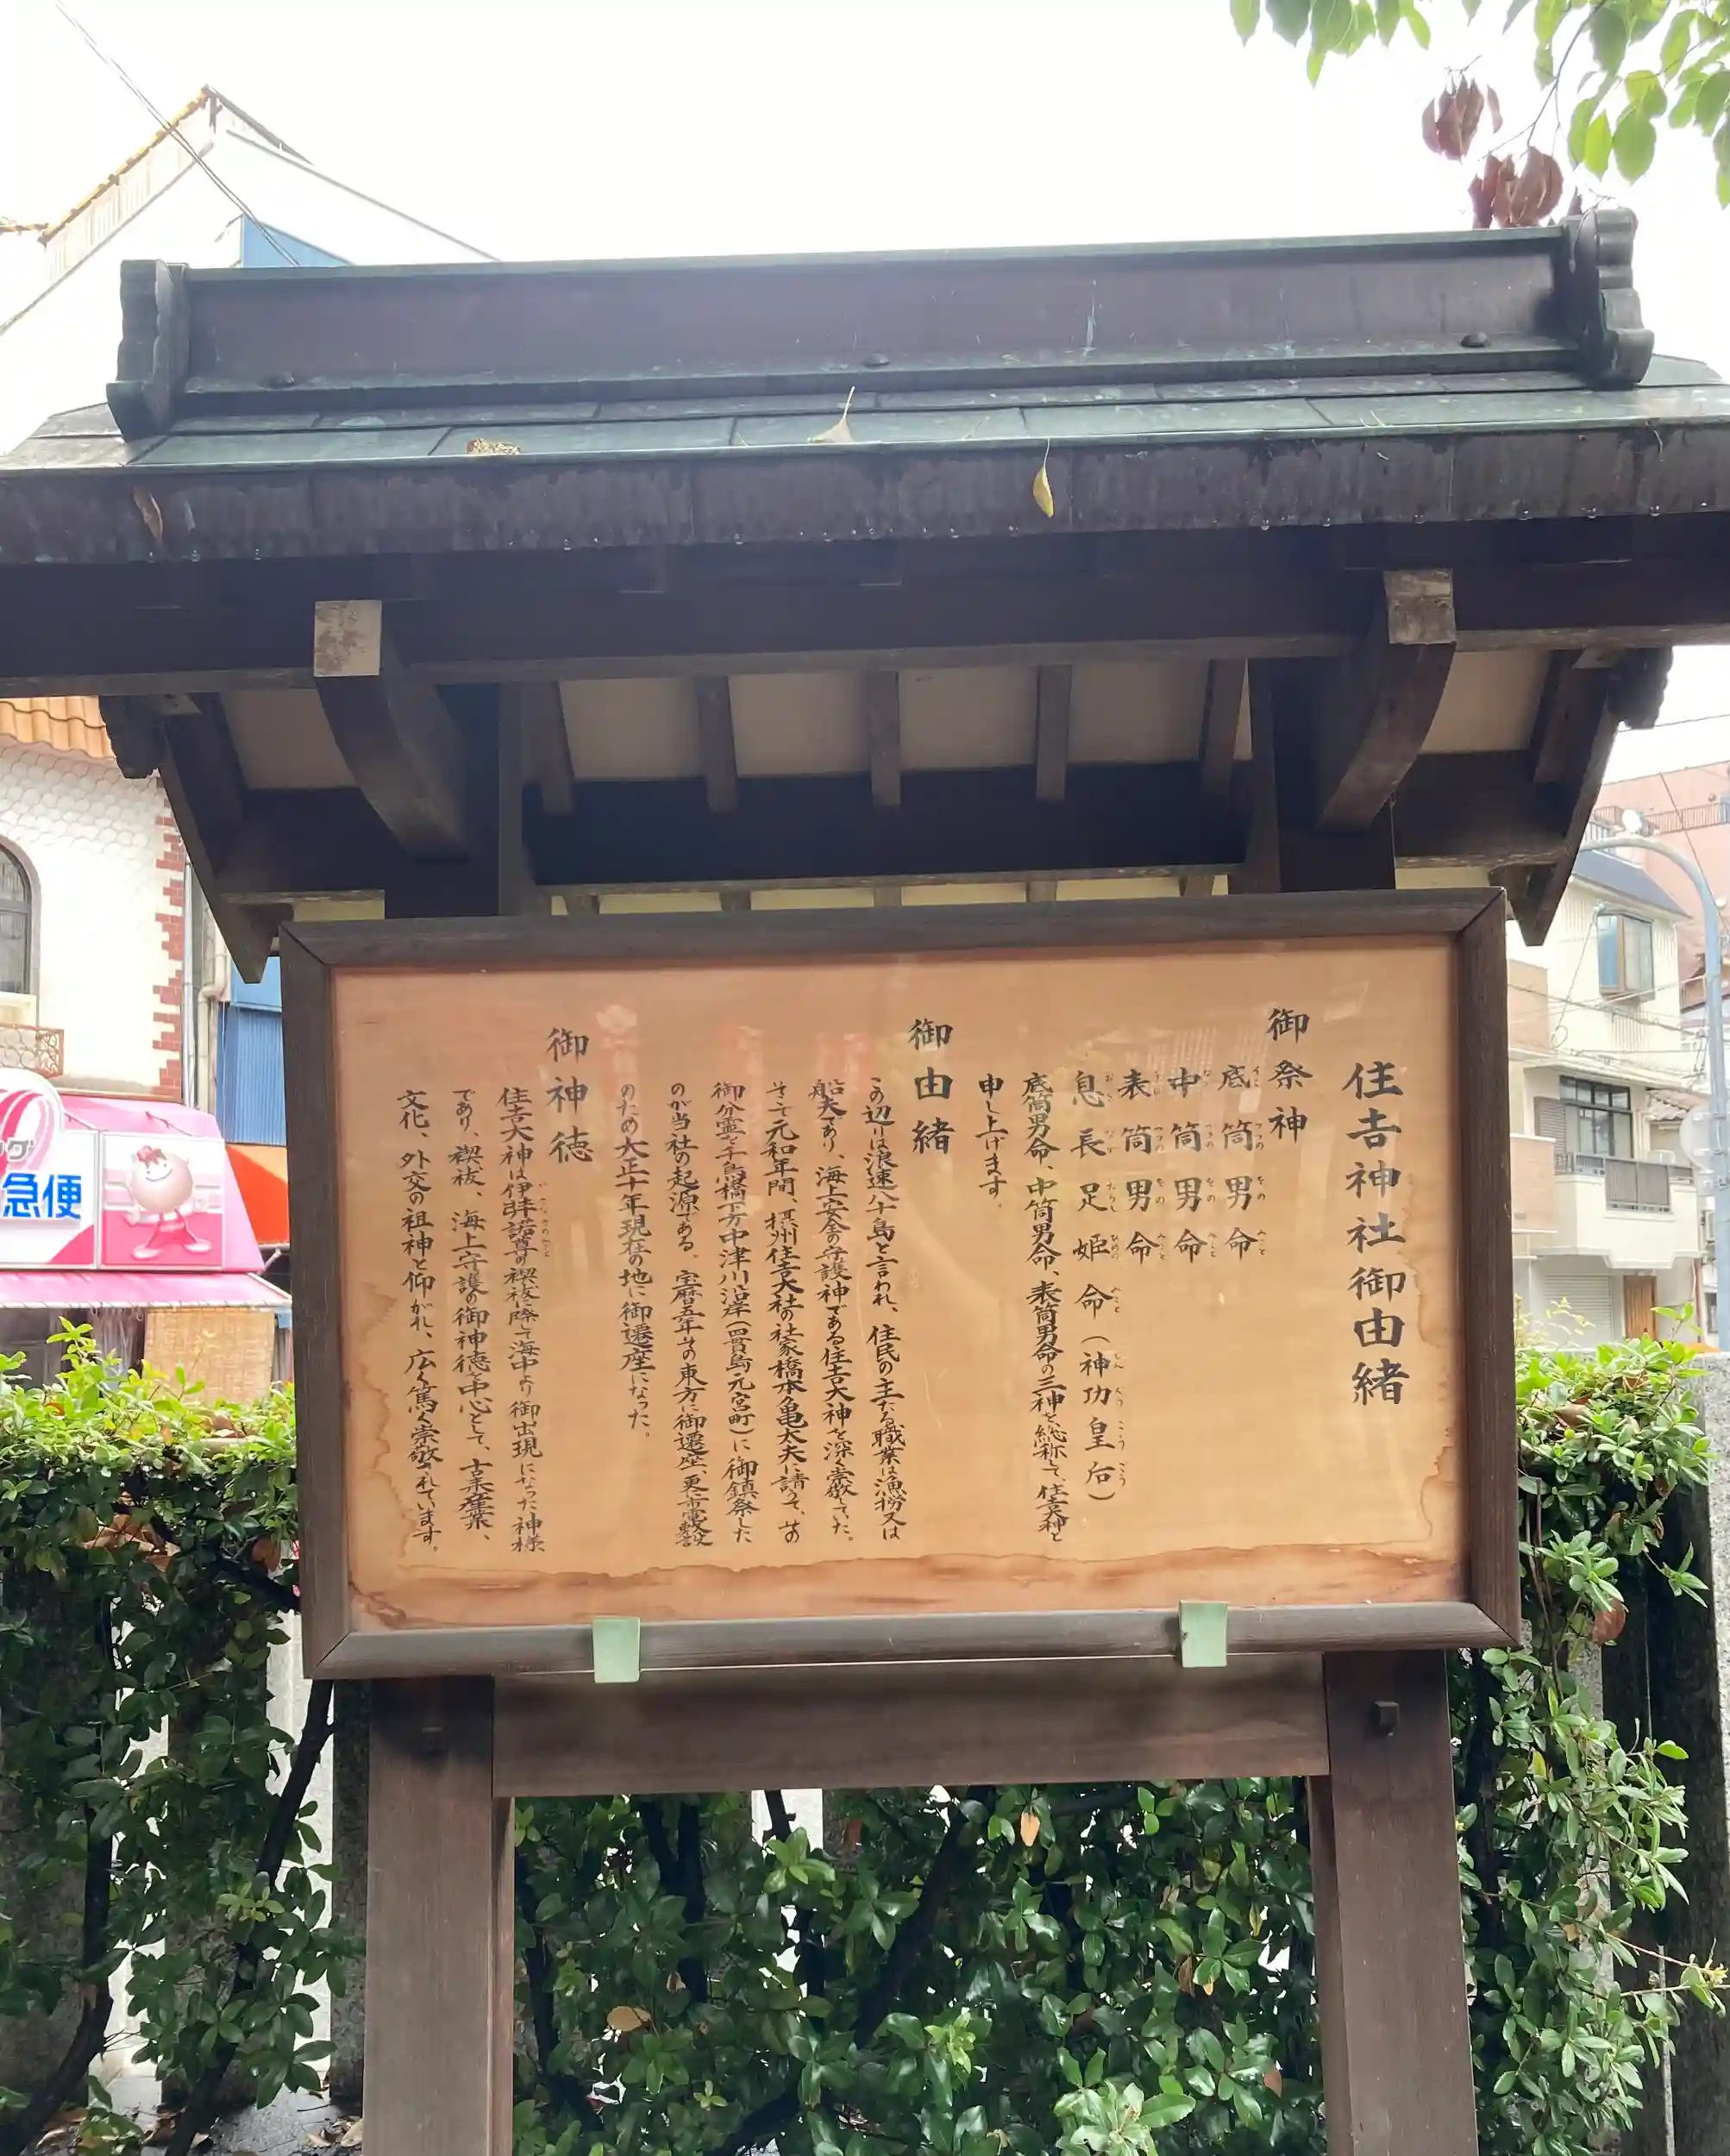 住吉神社御由緒
御祭神
底筒男命
中筒男命
表筒男命
息長足姫命(神功皇后)
底筒男命、中筒男命、表筒男命の三神を総称して、住吉大神と
申し上げます。
御由緒
この辺りは浪速八十島と言われ、住民の主たる職業は漁撈又は
船夫であり、海上安全の守護神である住吉大神を深く崇敬していた。
そこで元和年間、摂州住吉大社の社家橋本亀太夫に請うて、その
御分霊を千鳥橋下方中津川沿岸(四貫島元宮町)に御鎮祭した
のが当社の起源である。宝暦五年その東方に御遷座、更に市電敷設
のため大正十年現在の地に御遷座になった。
御神徳
住吉大神は伊弉諾尊の禊祓に際して海中より御出現になった神様
であり、禊祓、海上守護の御神徳を中心として、古来産業、
文化、外交の祖神と仰がれ、広く篤く崇敬されています。
急便